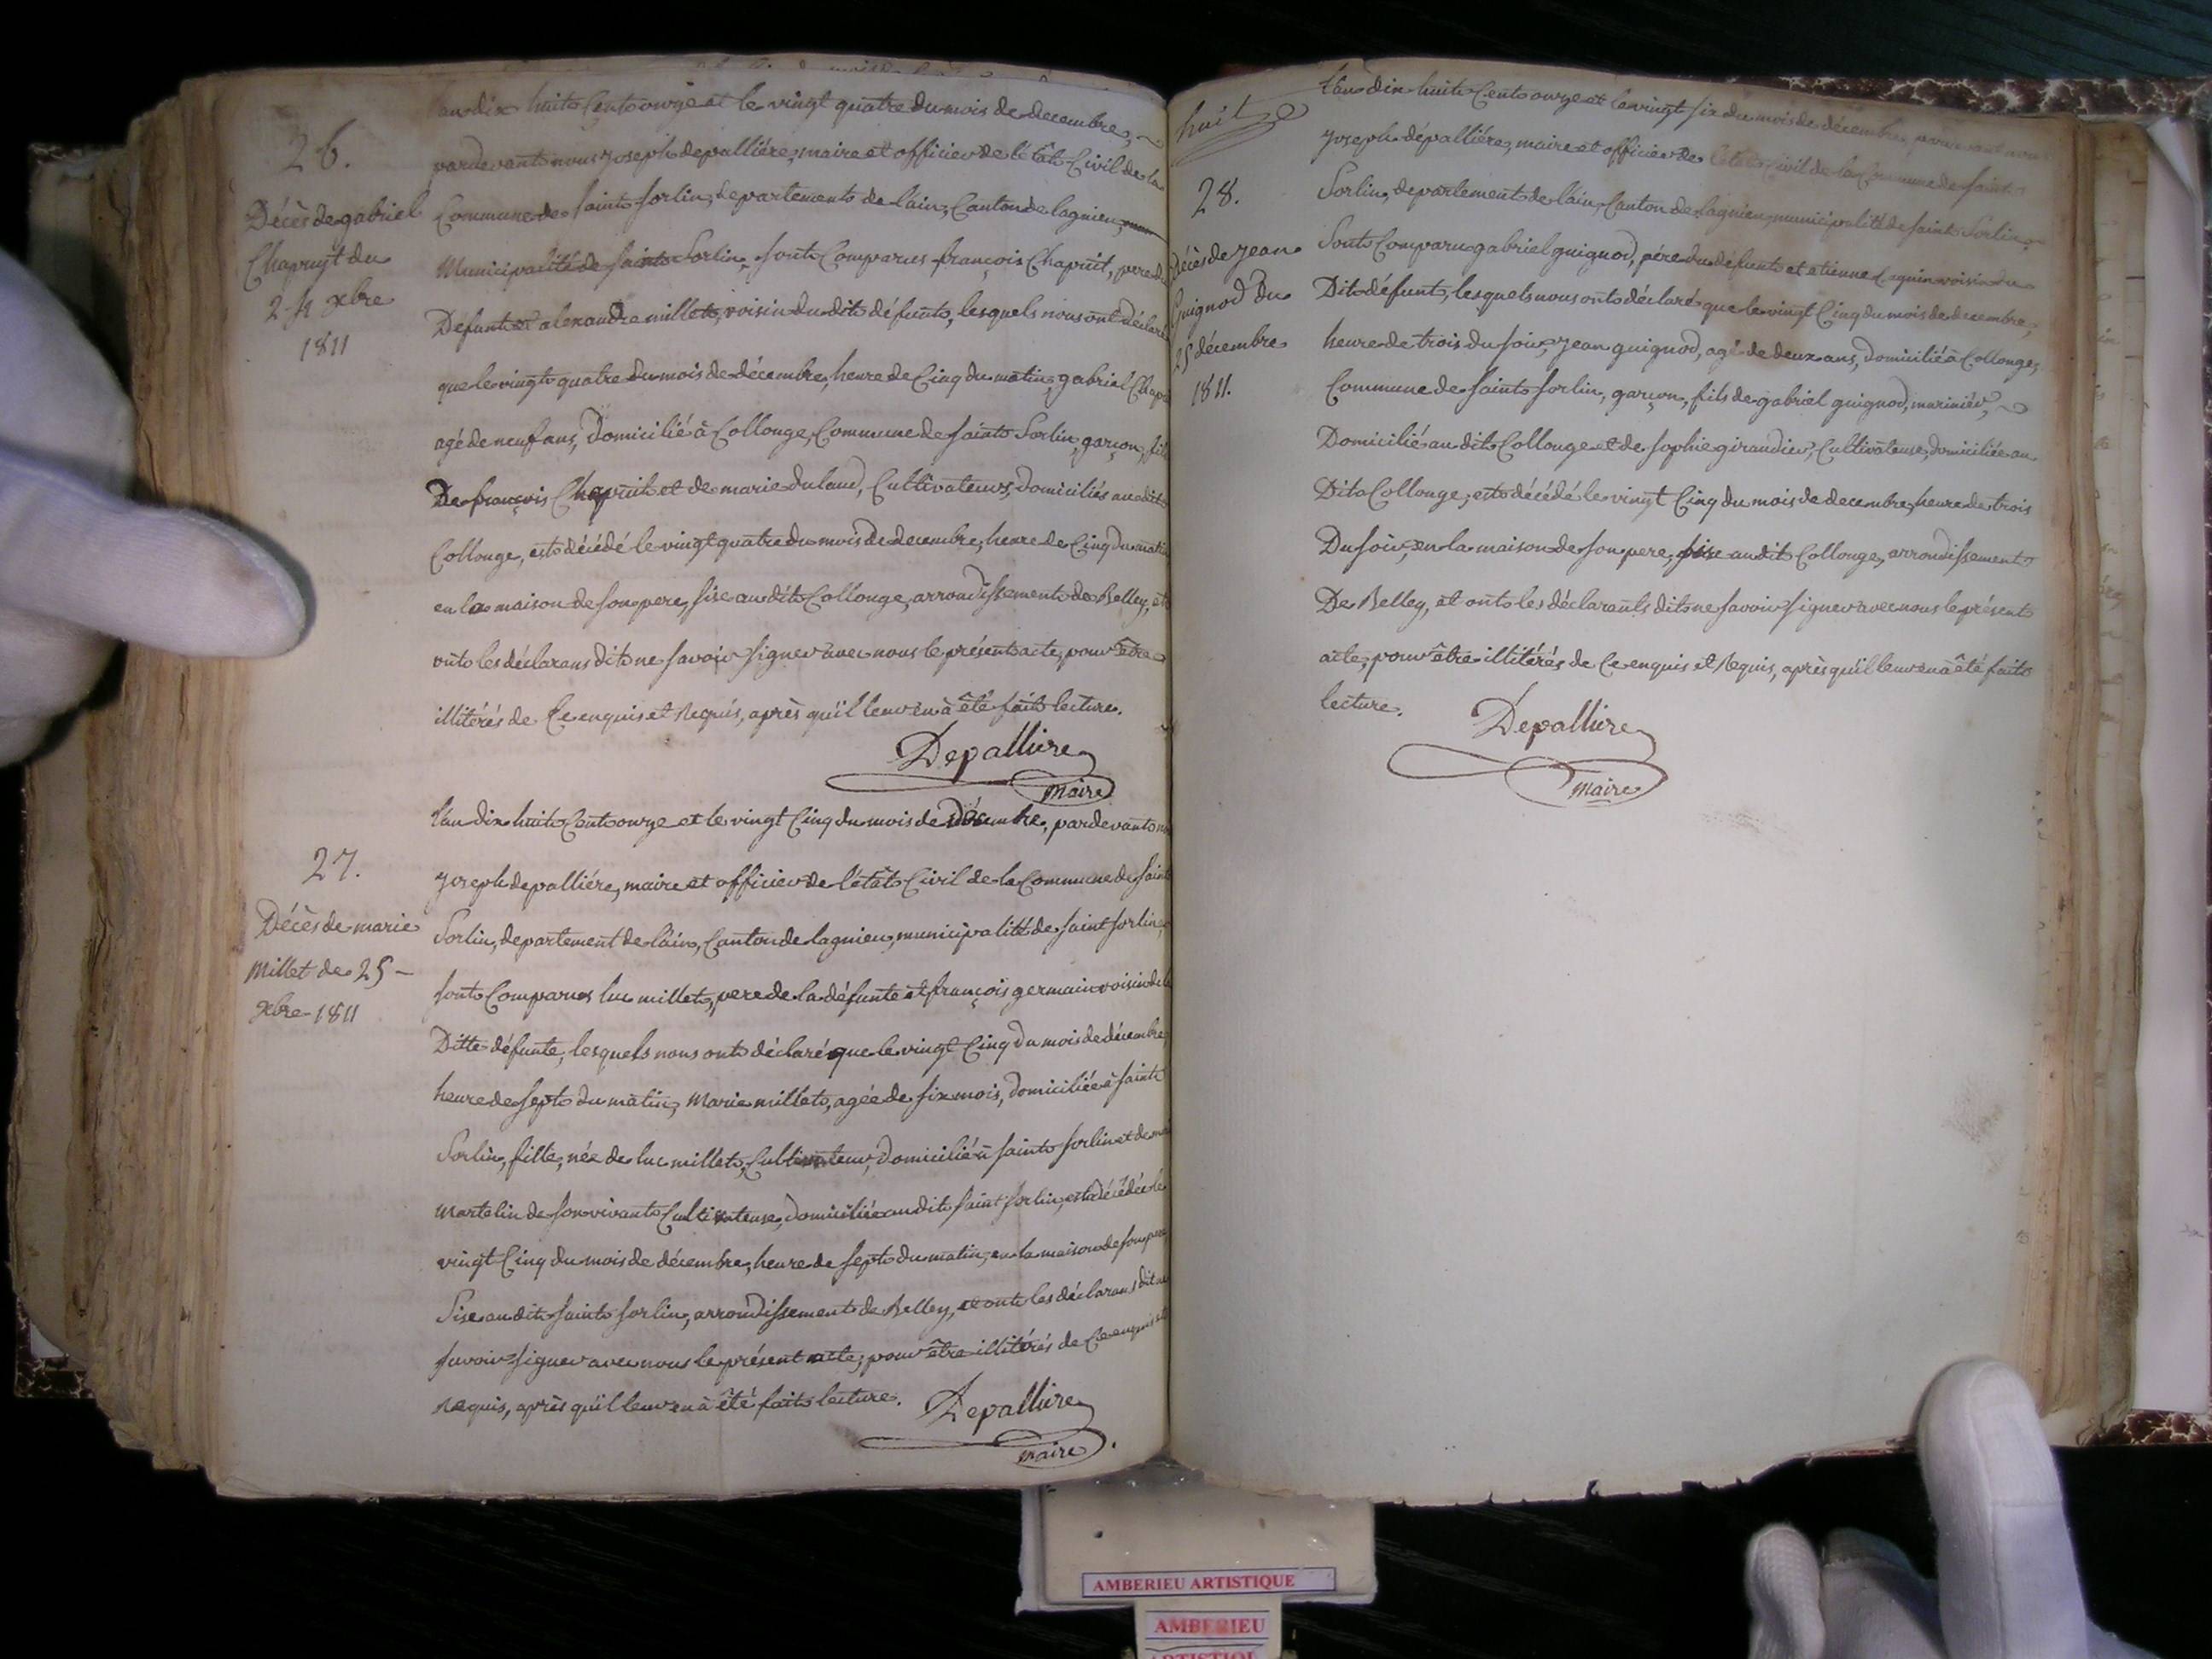 26.
Décès de gabriel
Chapuyt du
24 xbre
1811
l'an dix huit Cent onze et le vingt quatre du mois de decembre,
pardevant nous joseph depalliére, maire et officier de l'état Civil de la
Commune de saint Sorlin, departement de l'ain, Canton de lagnieu,
Municipalité de saint Sorlin, sont Comparus françois Chapuit, pere du
Défunt et alexandre millet, voisin du dit défunt, lesquels nous ont déclaré
que le vingt quatre du mois de décembre, heure de Cinq du matin, gabriel
agé de neuf ans, Domicilié à Collonge, Commune de saint Sorlin, garçon, fils
De françois Chapuit et de marie dulaud, Cultivateurs, domiciliés au dit
Collonge, est décédé le vingt quatre du mois de decembre, heure de Cinq du matin
en la maison de son pere, sise au dit Collonge, arrondissement de Belley, et
ont les déclarans dit ne savoir signer avec nous le présent acte, pour être
illitérés de Ce enquis et Requis, après qu'il leur en à été fait lecture.
Depalliere
maire
27.
Décès de marie
Millet de 25
xbre 1811
l'an dix huit Cent onze et le vingt Cinq du mois de Décembre, pardevant
joseph depalliére, maire et officier de l'état Civil de la Commune de saint
Sorlin, departement de l'ain, Canton de lagnieu, municipalité de saint Sorlin,
sont Comparus luc millet, pere de la défunte et françois germain voisin de la
Ditte défunte, lesquels nous ont déclaré que le vingt Cinq du mois de décembre
heure de sept du matin, Marie millet, agée de six mois, domiciliée à saint
Sorlin, fille, née de luc millet, Cultivateur, Domicilié à saint Sorlin et de
Martelin de son vivant Cultivateuse, domiciliée au dit saint Sorlin, est décédée le
vingt Cinq du mois de décembre, heure de sept du matin, en la maison de son pere
Sise au dit saint Sorlin, arrondissement de Belley, et ont les déclarans dit ne
savoir signer avec nous le présent acte, pour être illitérés de Ce enquis et
Requis, après qu'il leur en à été fait lecture.
Depalliere
maire
huit
28.
décès de jean
Guignod du
25 décembre
1811.
l'an dix huit Cent onze et le vingt six du mois de décembre, pardevant nous
joseph dépalliére, maire et officier de l'état Civil de la Commune de saint
Sorlin, departement de l'ain, Canton de lagnieu, municipalité de saint Sorlin,
Sont Comparu gabriel guignod, pére du défunt et etienne voisin du
Dit défunt, lesquels nous ont déclaré que le vingt Cinq du mois de decembre,
heure de trois du soir, jean guignod, agé de deux ans, Domicilié à Collonge,
Commune de saint Sorlin, garçon, fils de gabriel guignod, mariniér,
Domicilié au dit Collonge et de sophie girandier, Cultivateuse, domiciliée au
Dit Collonge, est décédé le vingt Cinq du mois de decembre, heure de trois
Du soir, en la maison de son pere, sise au dit Collonge, arrondissement
De Belley, et ont les déclarants dit ne savoir signer avec nous le présent
acte, pour être illitérés de Ce enquis et Requis, après qu'il leur en à été fait
lecture.
Depalliere
maire
AMBERIEU ARTISTIQUE
AMBERIEU
ARTISTIQUE